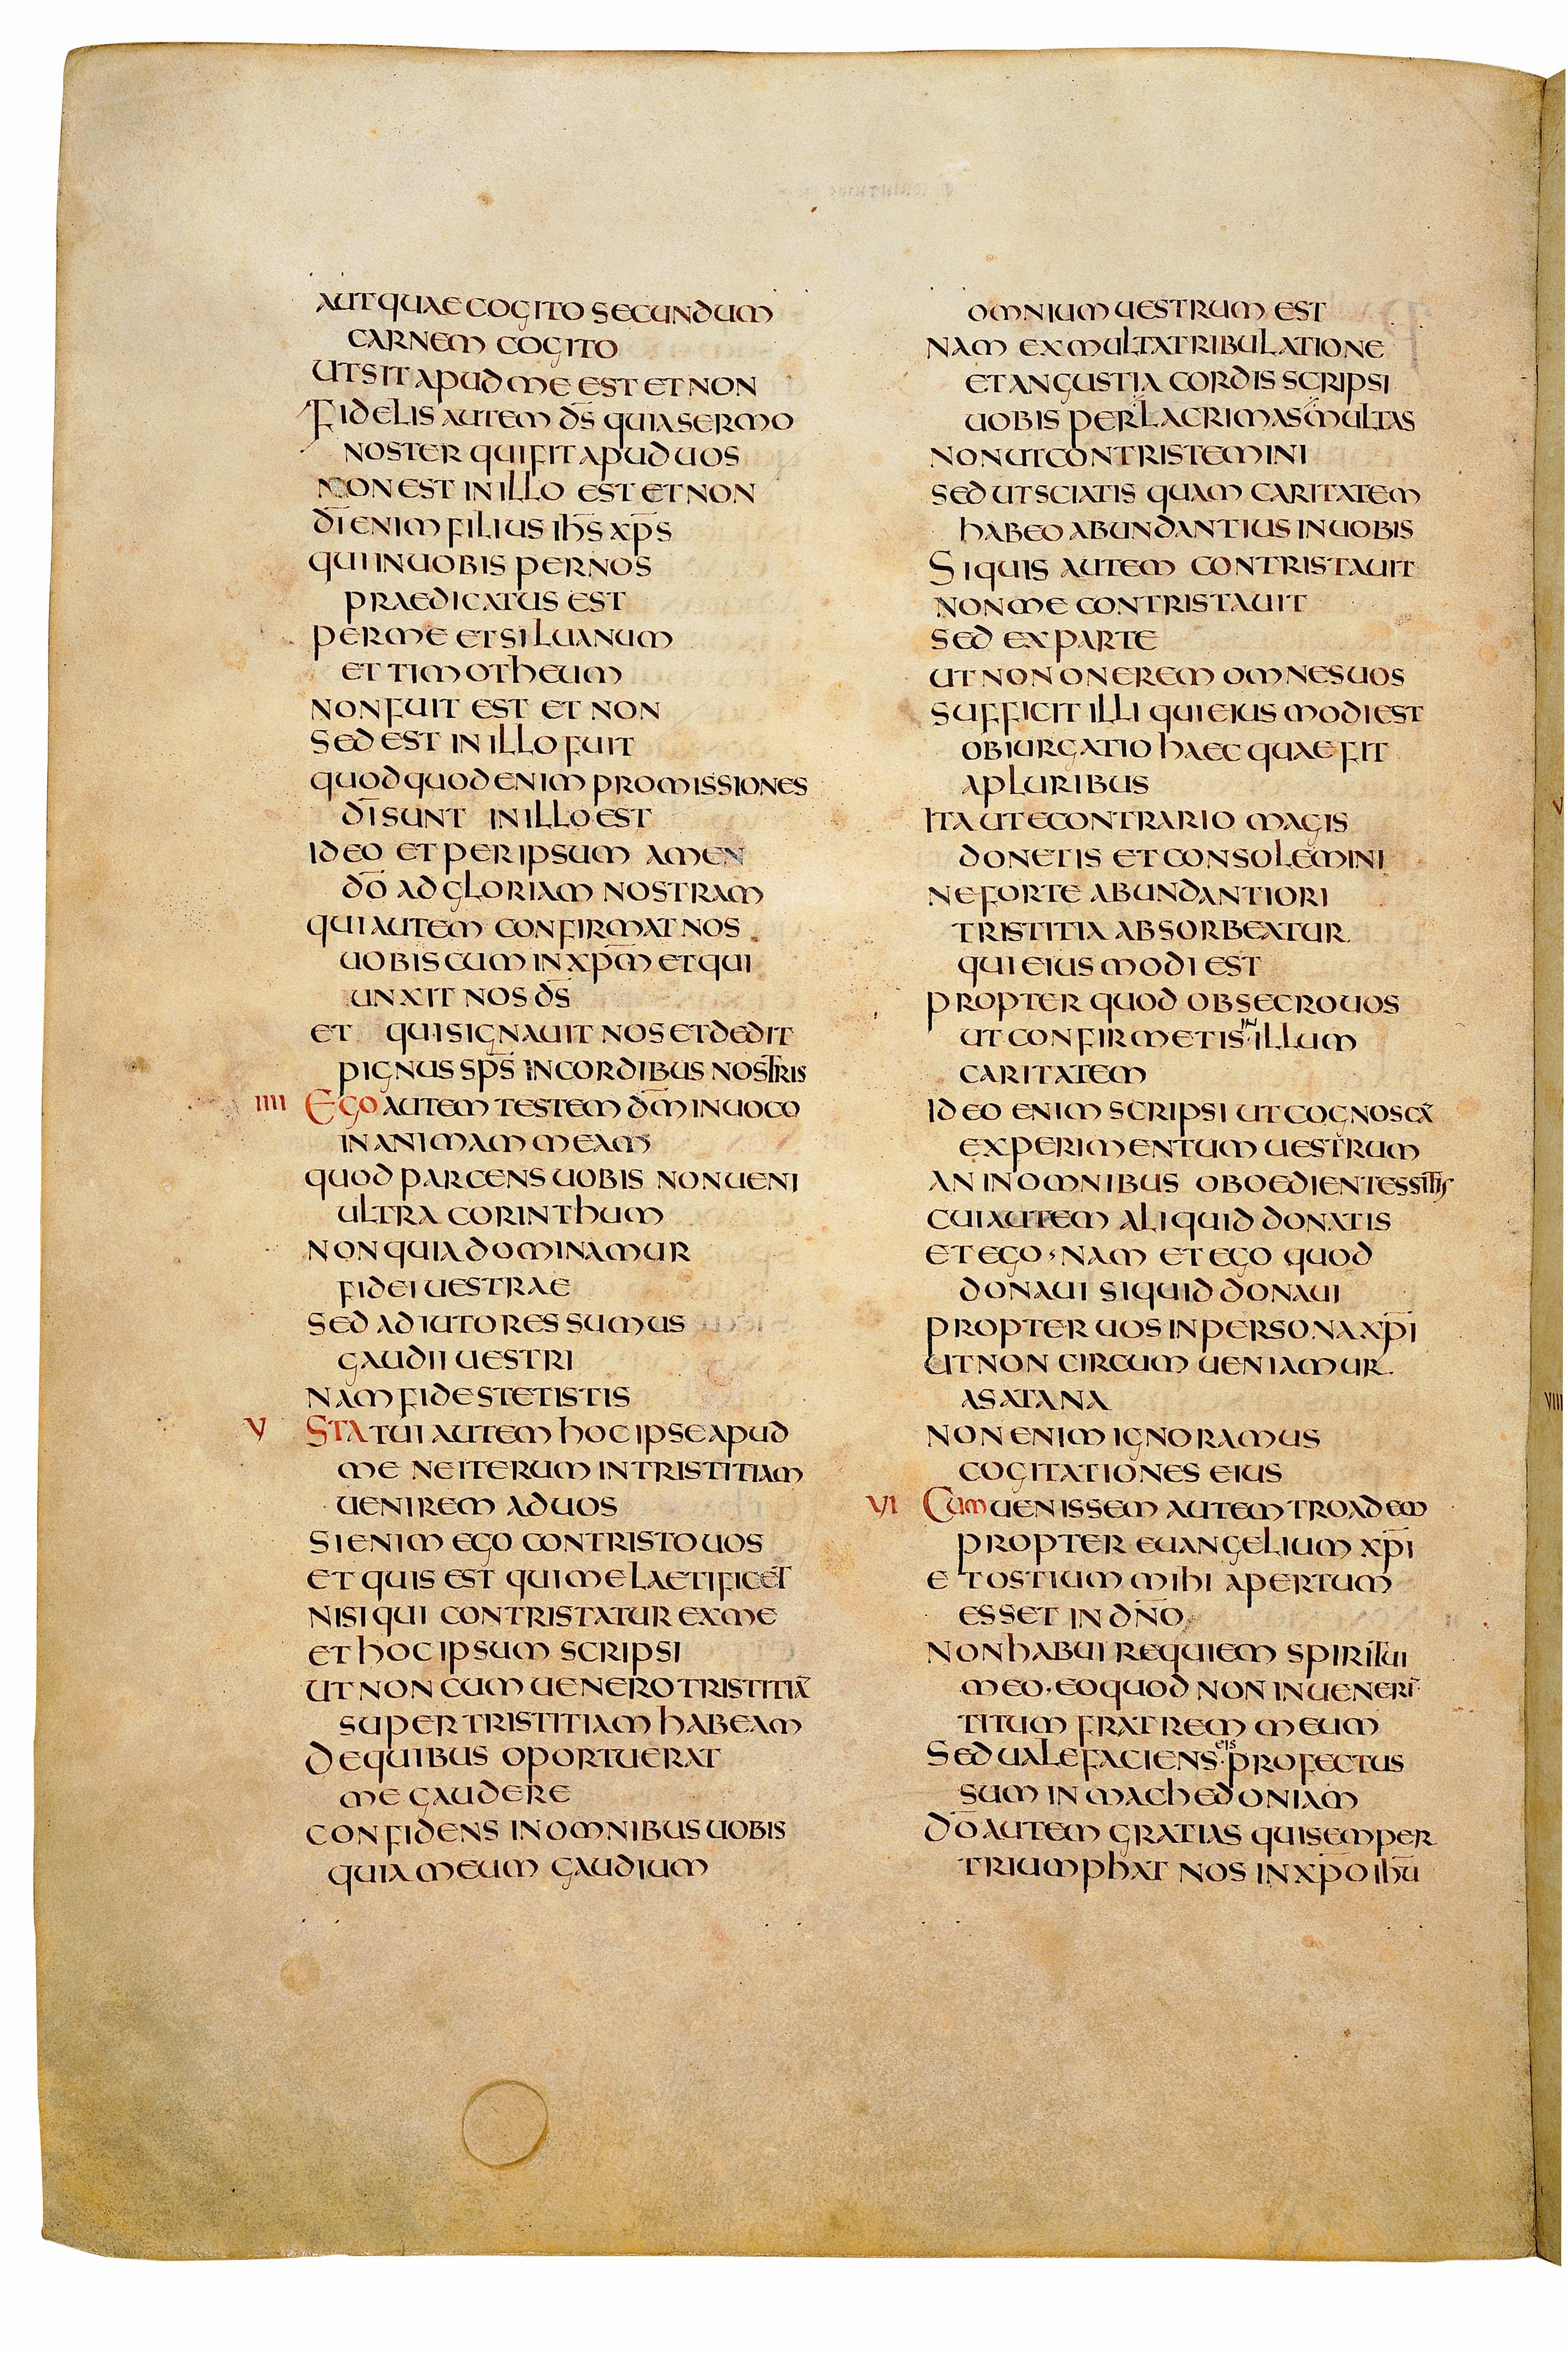 AUT QUAE COGITO SECUNDUM
CARNEM COGITO
UT SIT APUD ME EST ET NON
FIDELIS AUTEM D̅S̅ QUIA SERMO
NOSTER QUI FIT APUD UOS
NON EST IN ILLO EST ET NON
D̅I̅ ENIM FILIUS IH̅S̅ XP̅S̅
QUI IN UOBIS PER NOS
PRAEDICATUS EST
PER ME ET SILUANUM
ET TIMOTHEUM
NON FUIT EST ET NON
SED EST IN ILLO FUIT
QUODQUOD ENIM PROMISSIONES
D̅I̅ SUNT IN ILLO EST
IDEO ET PER IPSUM AMEN
D̅O̅ AD GLORIAM NOSTRAM
QUI AUTEM CONFIRMAT NOS
UOBISCUM IN XP̅M̅ ET QUI
UNXIT NOS D̅S̅
ET QUI SIGNAUIT NOS ET DEDIT
PIGNUS SP̅S̅ IN CORDIBUS NOSTRIS
IIII EGO AUTEM TESTEM D̅M̅ INUOCO
IN ANIMAM MEAM
QUOD PARCENS UOBIS NON UENI
ULTRA CORINTHUM
NON QUIA DOMINAMUR
FIDEI UESTRAE
SED ADIUTORES SUMUS
GAUDII UESTRI
NAM FIDE STETISTIS
V STATUI AUTEM HOC IPSE APUD
ME NE ITERUM IN TRISTITIAM
UENIREM AD UOS
SI ENIM EGO CONTRISTO UOS
ET QUIS EST QUI ME LAETIFICET
NISI QUI CONTRISTATUR EX ME
ET HOC IPSUM SCRIPSI
UT NON CUM UENERO TRISTITIA̅
SUPER TRISTITIAM HABEAM
DE QUIBUS OPORTUERAT
ME GAUDERE
CONFIDENS IN OMNIBUS UOBIS
QUIA MEUM GAUDIUM
OMNIUM UESTRUM EST
NAM EX MULTA TRIBULATIONE
ET ANGUSTIA CORDIS SCRIPSI
UOBIS PER LACRIMAS MULTAS
NON UT CONTRISTEMINI
SED UT SCIATIS QUAM CARITATEM
HABEO ABUNDANTIUS IN UOBIS
SI QUIS AUTEM CONTRISTAUIT
NON ME CONTRISTAUIT
SED EX PARTE
UT NON ONEREM OMNES UOS
SUFFICIT ILLI QUI EIUSMODI EST
OBIURGATIO HAEC QUAE FIT
A PLURIBUS
ITA UT E CONTRARIO MAGIS
DONETIS ET CONSOLEMINI
NE FORTE ABUNDANTIORI
TRISTITIA ABSORBEATUR
QUI EIUSMODI EST
PROPTER QUOD OBSECRO UOS
UT CONFIRMETIS IN ILLUM
CARITATEM
IDEO ENIM SCRIPSI UT COGNOSCA̅
EXPERIMENTUM UESTRUM
AN IN OMNIBUS OBOEDIENTES SITIS
CUI AUTEM ALIQUID DONATIS
ET EGO, NAM ET EGO QUOD
DONAUI SI QUID DONAUI
PROPTER UOS IN PERSONA XP̅I̅
UT NON CIRCUMUENIAMUR
A SATANA
NON ENIM IGNORAMUS
COGITATIONES EIUS
VI CUM UENISSEM AUTEM TROADEM
PROPTER EUANGELIUM XP̅I̅
ET OSTIUM MIHI APERTUM
ESSET IN D̅N̅O̅
NON HABUI REQUIEM SPIRITUI
MEO· EO QUOD NON INUENERI̅
TITUM FRATREM MEUM
SED UALEFACIENS EIS PROFECTUS
SUM IN MACHEDONIAM
D̅O̅ AUTEM GRATIAS QUI SEMPER
TRIUMPHAT NOS IN XP̅O̅ IH̅U̅
V
VIIII